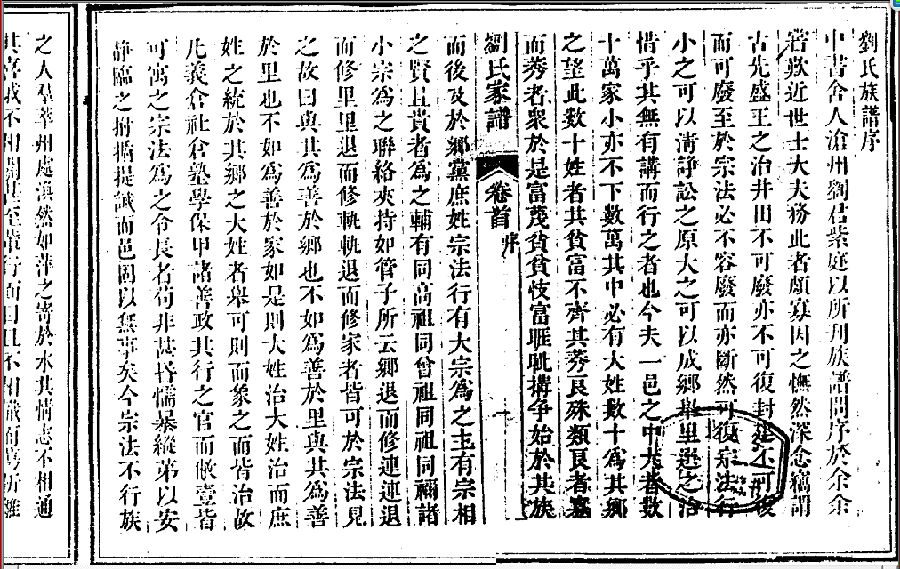 劉氏族譜序
中書舍人滄州劉君紫庭以所刊族譜問序於余余
喜歎近世士大夫務此者頗寡因之憮然深念竊謂
古先盛王之治井田不可廢亦不可復封建不可復
而可廢至於宗法必不容廢而亦斷然可復宗法行
小之可以清諍訟之原大之可以成鄉舉里選之治
惜乎其無有講而行之者也今夫一邑之中大者數
十萬家小亦不下數萬其中必有大姓數十為其鄉
之望此數十姓者其貧富不齊其莠良殊類良者寡
而莠者衆於是富蔑貧貧忮富眦眦搆爭始於其族
劉氏家譜 卷首 序
而後及於鄉黨庶姓宗法行有大宗為之主有宗相
之賢且貴者為之輔有同高祖同曾祖同祖同禰諸
小宗為之聯絡夾持如管子所云鄉退而修連連退
而修里里退而修軌軌退而修家者皆可於宗法見
之故曰與其為善於鄉也不如為善於里與其為善
於里也不如為善於家如是則大姓治大姓治而庶
姓之統於其鄉之大姓者舉可則而象之而皆治故
凡義倉社倉塾學保甲諸善政其行之官而輒壅皆
可寓之宗法為之令長者苟非甚昏懦暴縱弟以安
靜臨之拊循提誡而邑固以無事矣今宗法不行族
之人羣萃州處渙然如萍之寄於水其情志不相通